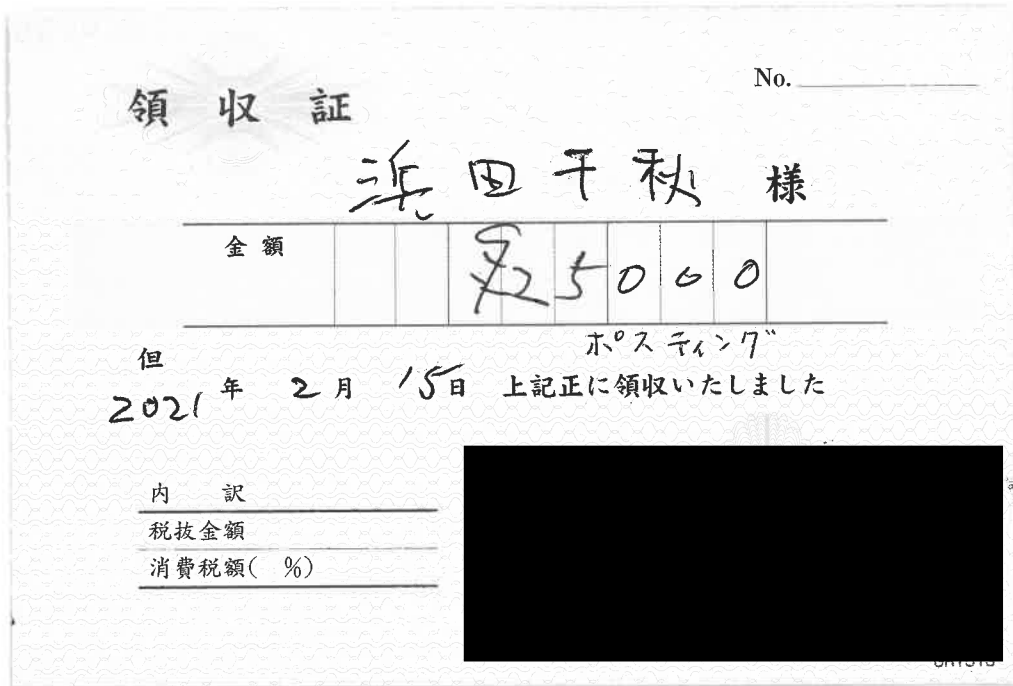 No.
領収証
浜田千秋 様
金額 ¥25000
ポスティング
但
2021年 2月 15日 上記正に領収いたしました
内 訳
税抜金額
消費税額( %)